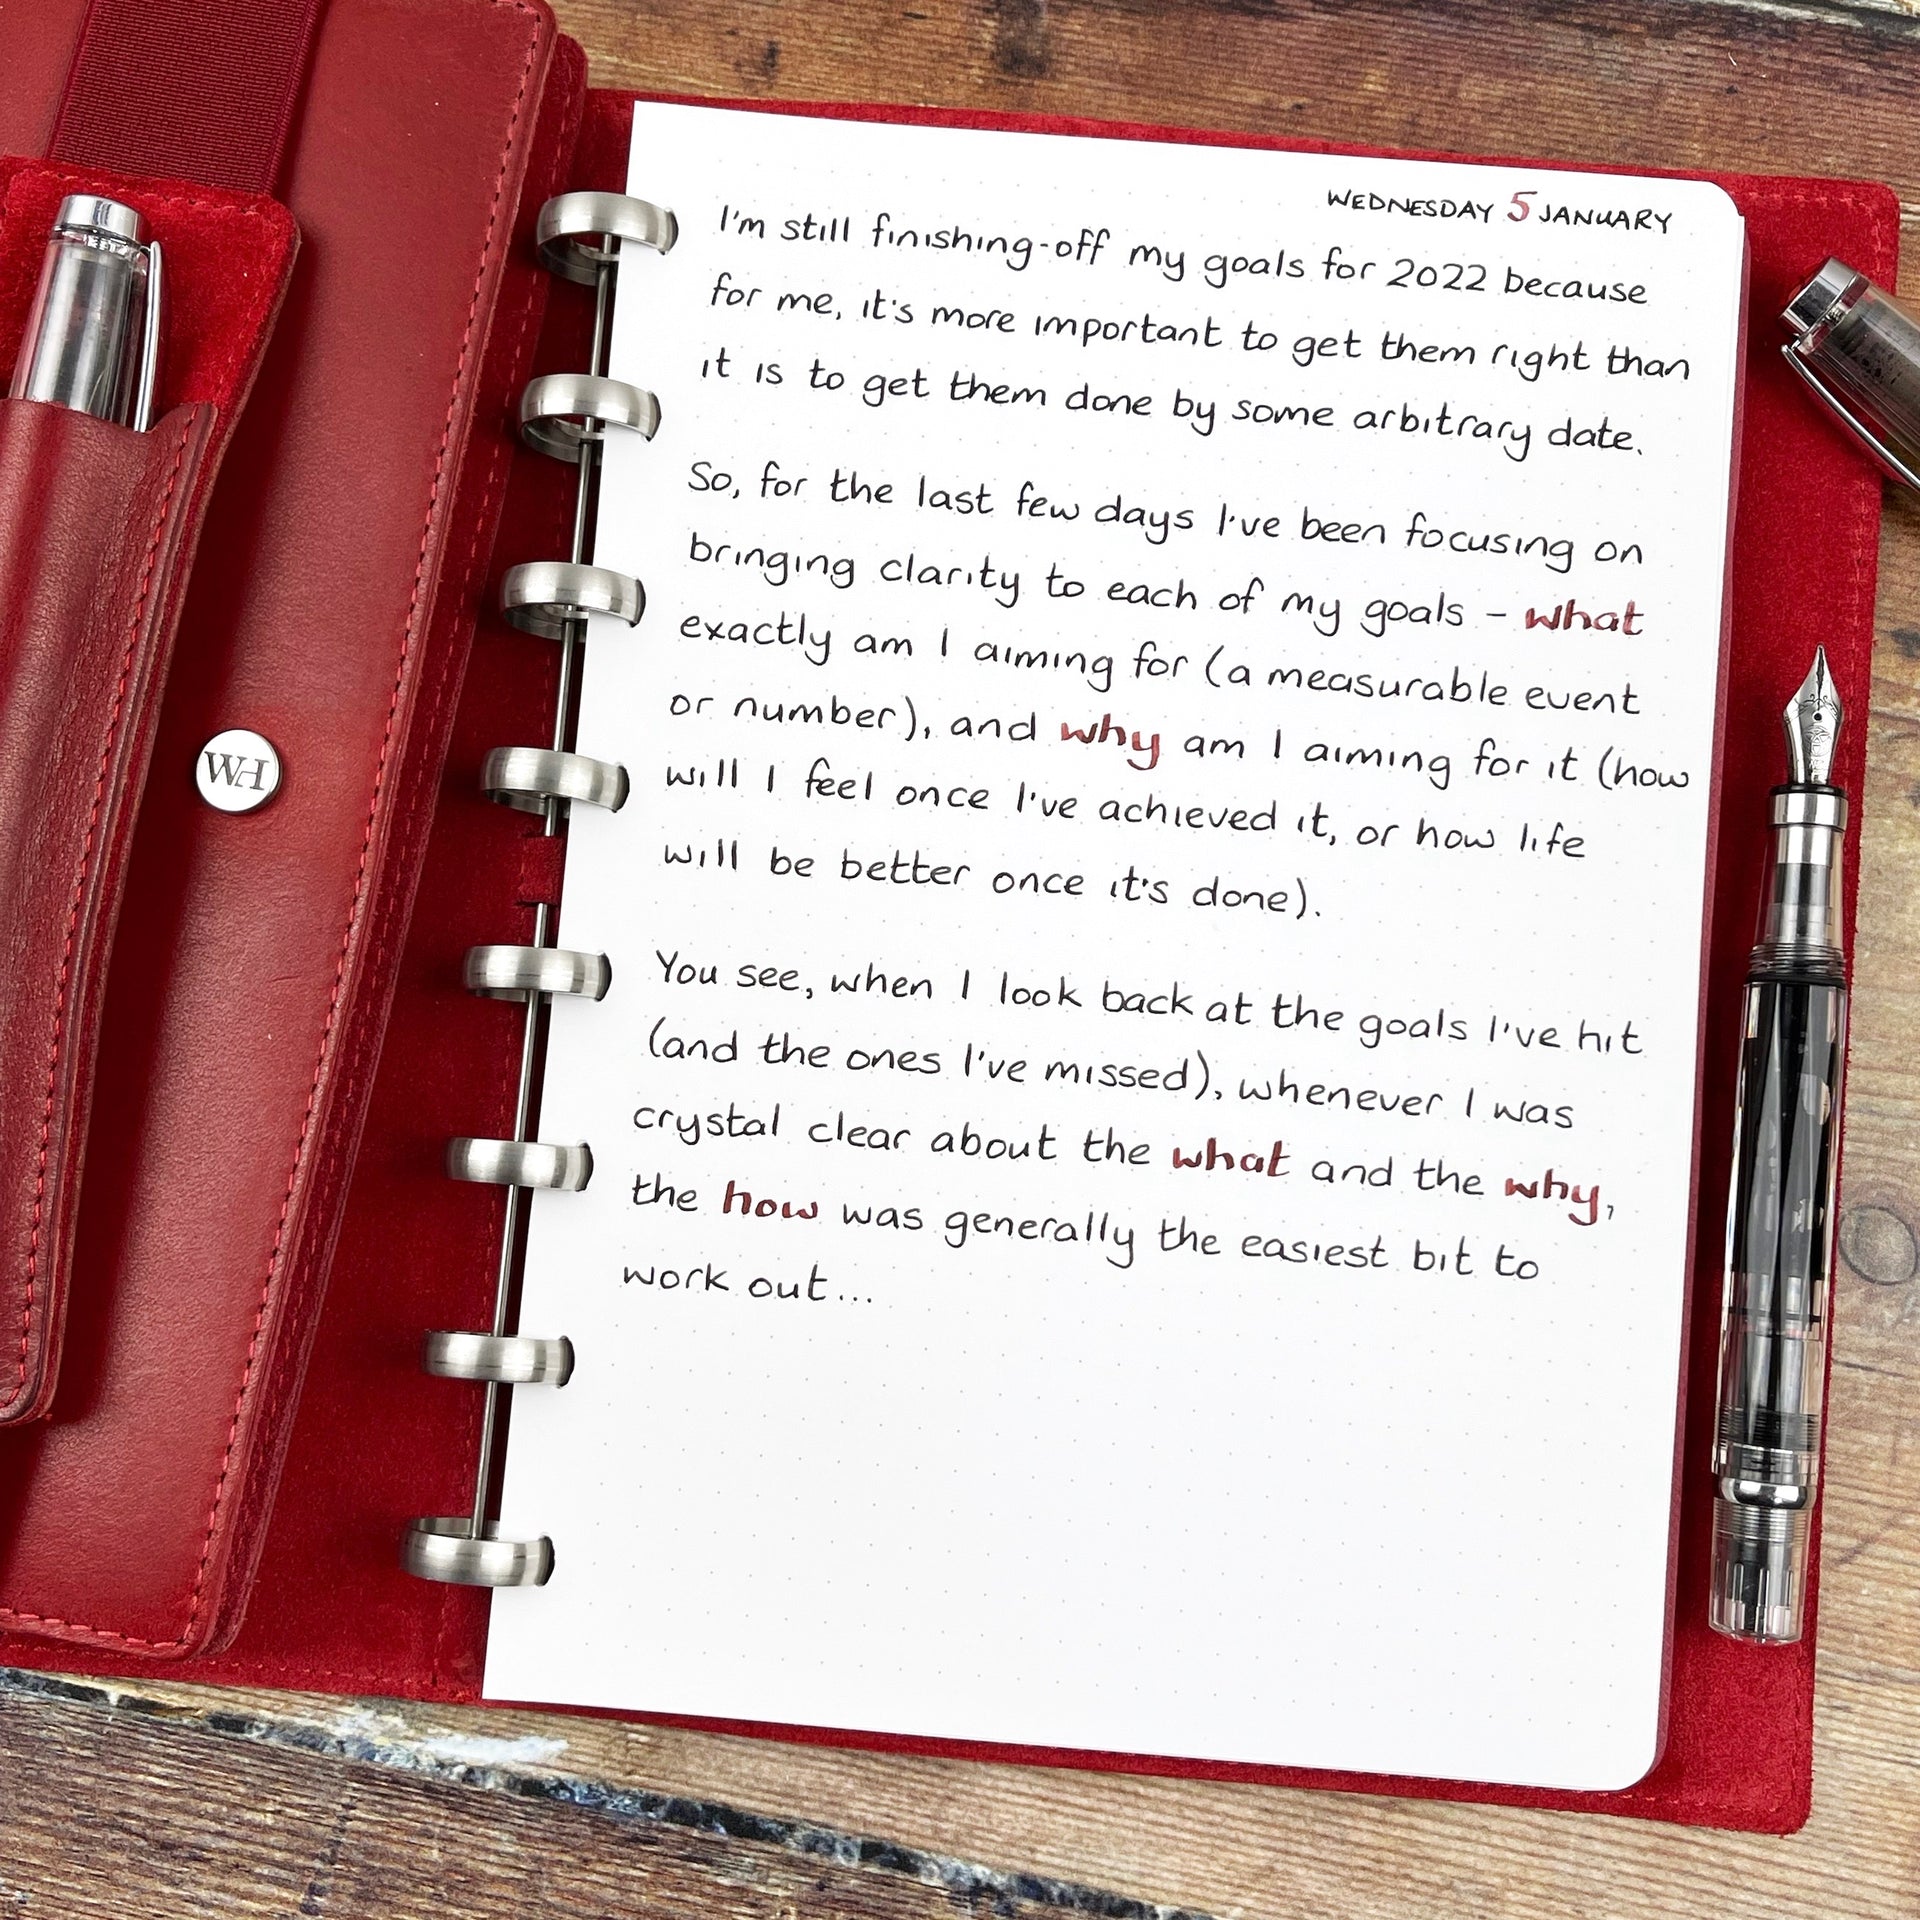 WEDNESDAY 5 JANUARY
I'm still finishing-off my goals for 2022 because
for me, it's more important to get them right than
it is to get them done by some arbitrary date.
So, for the last few days I've been focusing on
bringing clarity to each of my goals - what
exactly am I aiming for (a measurable event
or number), and why am I aiming for it (how
will I feel once I've achieved it, or how life
will be better once it's done).
You see, when I look back at the goals I've hit
(and the ones I've missed), whenever I was
crystal clear about the what and the why,
the how was generally the easiest bit to
work out...
WH